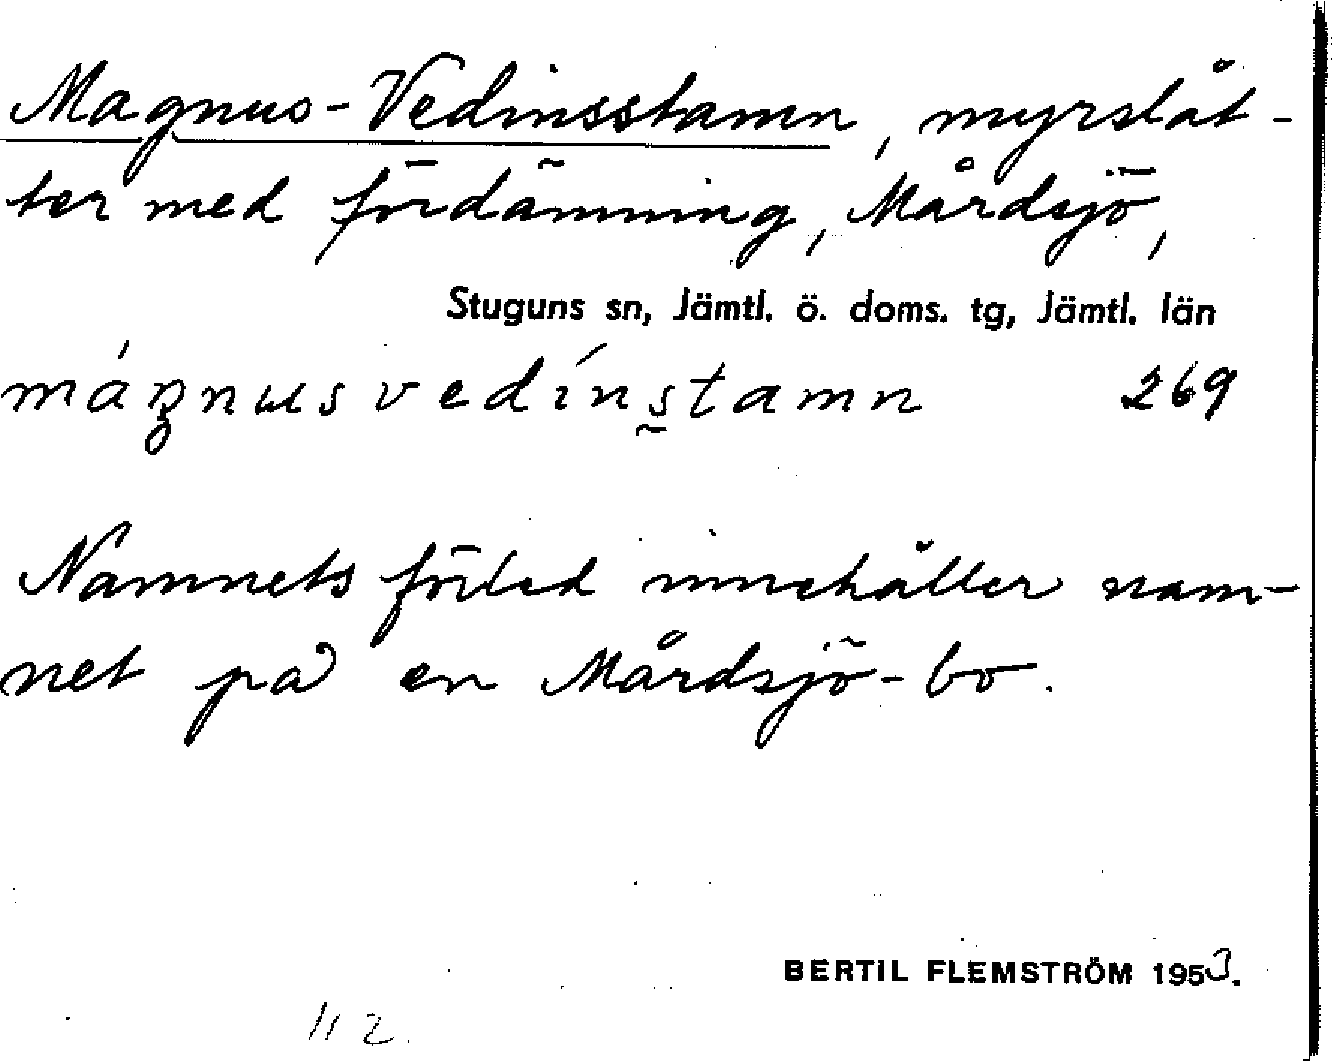 Magnus-Vedinsstamn, myrslåt-
ter med fördämning, Mårdsjö,
Stuguns sn, Jämtl. ö. doms. tg, Jämtl. län
mágnusvedínstamn 269
Namnets förled innehåller nam-
net på en Mårdsjö-bo.
BERTIL FLEMSTRÖM 1953.
112.